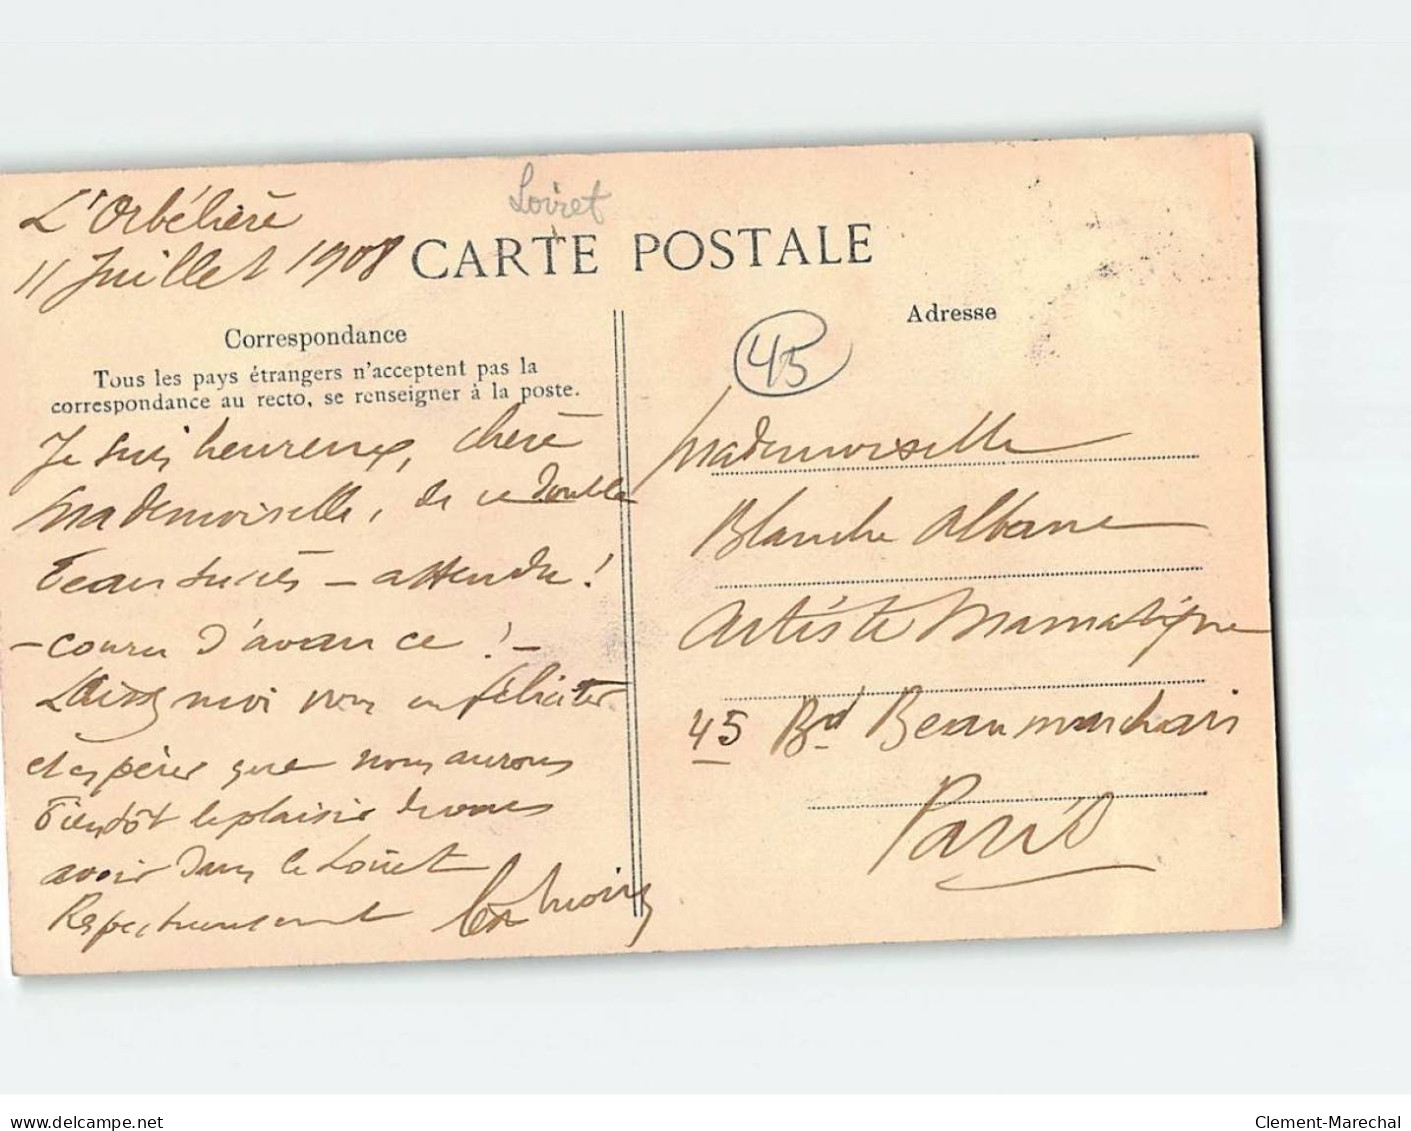 L'Orbélière
11 Juillet 1908
Loiret
CARTE POSTALE
Correspondance
Tous les pays étrangers n'acceptent pas la
correspondance au recto, se renseigner à la poste.
Je suis heureux, chère
Mademoiselle, de ce double
beau succès – attendu !
– couru d'avance ! –
Laissez moi vous en féliciter
et espérer que nous aurons
bientôt le plaisir de vous
avoir dans le Loiret
Respectueusement
Adresse
45
Mademoiselle
Blanche Albane
Artiste Dramatique
45 Bd Beaumarchais
Paris
delcampe.net
Clement-Marechal